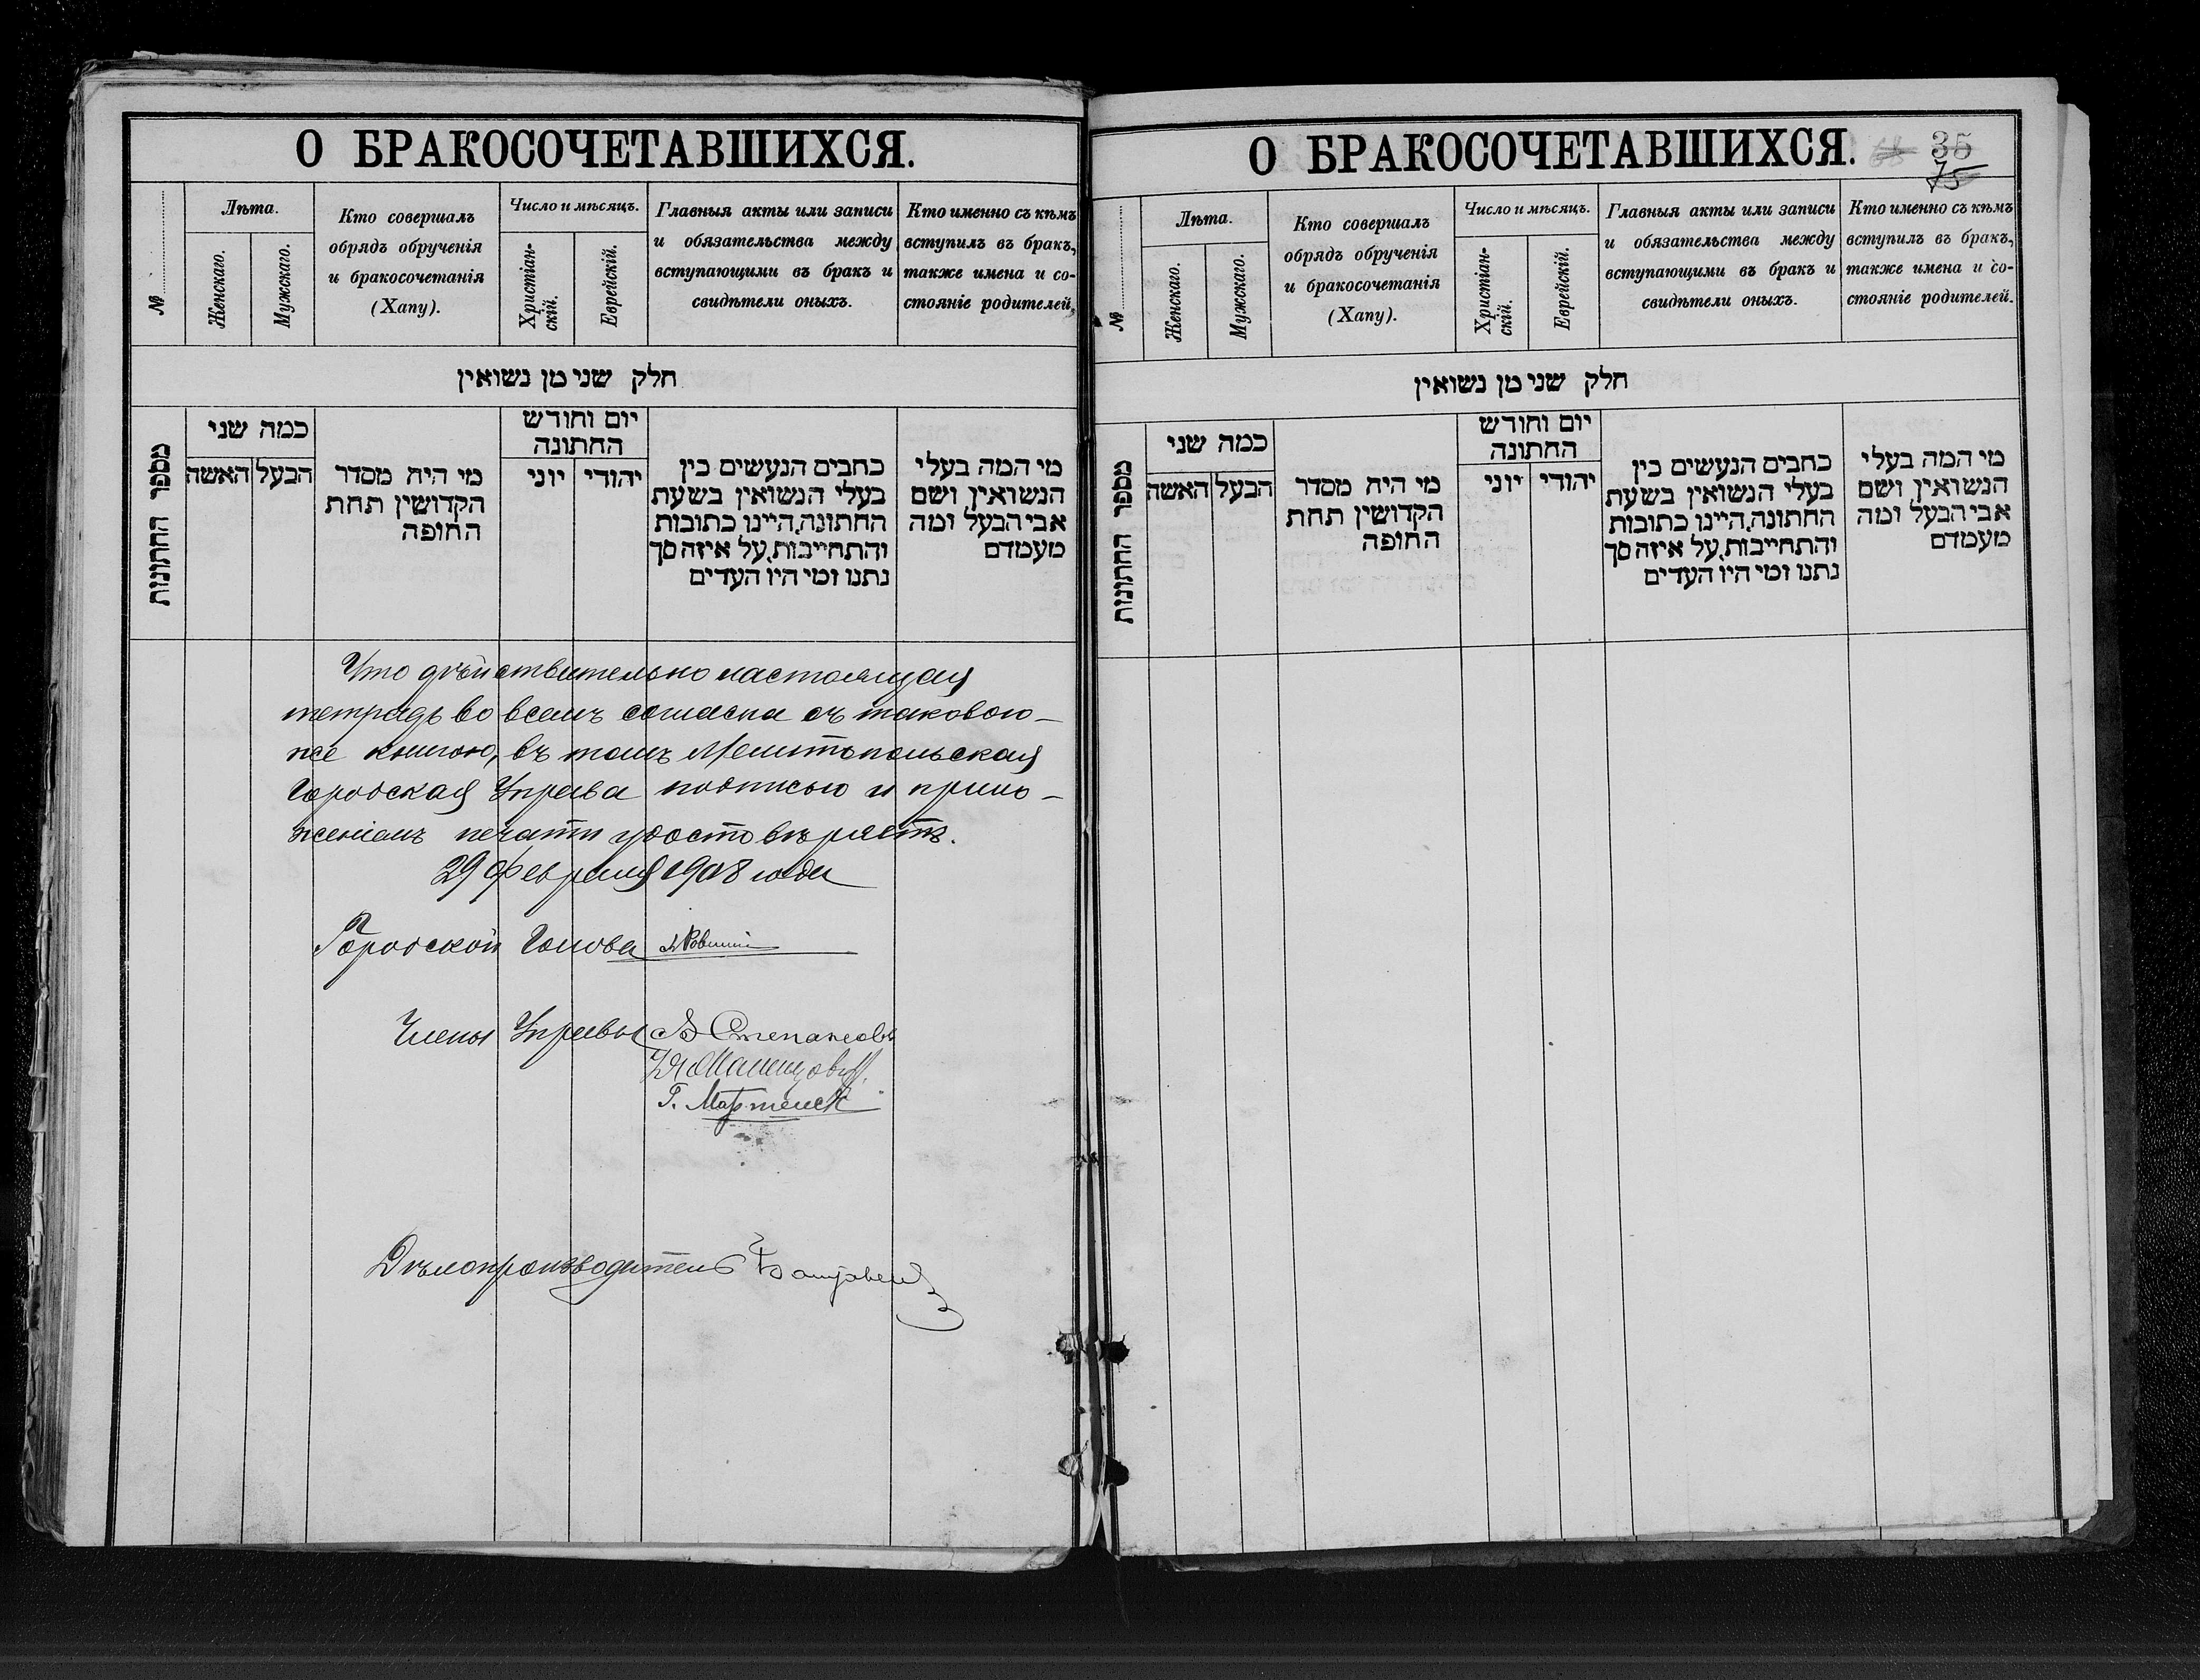 О БРАКОСОЧЕТАВШИХСЯ.
№
Лѣта.
Женскаго.
Мужскаго.
Кто совершалъ
обрядъ обрученія
и бракосочетанія
(Хапу).
Число и мѣсяцъ.
Христіан-
скій.
Еврейскій.
Главныя акты или записи
и обязательства между
вступающими въ бракъ и
свидѣтели оныхъ.
Кто именно съ кѣмъ
вступилъ въ бракъ,
также имена и со-
стояніе родителей.
חלק שני מן נשואין
מספר החתונות
כמה שני
הבעל
האשה
מי היה מסדר
הקדושין תחת
החופה
יום וחודש
החתונה
יהודי
יוני
כתבים הנעשים בין
בעלי הנשואין בשעת
החתונה, היינו כתובות
והתחייבות, על איזה סך
נתנו ומי היו העדים
מי המה בעלי
הנשואין ושם
אבי הבעל ומה
מעמדם
Что дѣйствительно настоящая
тетрадь во всемъ согласна съ таковою-
же книгою, въ томъ Мелитопольская
Городская Управа подписью и прило-
женіемъ печати удостовѣряетъ.
29 Февраля 1908 года
Городской Голова
Члены Управы Степановъ
Г. Мартенсъ
Дѣлопроизводитель
О БРАКОСОЧЕТАВШИХСЯ.
35
75
№
Лѣта.
Женскаго.
Мужскаго.
Кто совершалъ
обрядъ обрученія
и бракосочетанія
(Хапу).
Число и мѣсяцъ.
Христіан-
скій.
Еврейскій.
Главныя акты или записи
и обязательства между
вступающими въ бракъ и
свидѣтели оныхъ.
Кто именно съ кѣмъ
вступилъ въ бракъ,
также имена и со-
стояніе родителей.
חלק שני מן נשואין
מספר החתונות
כמה שני
הבעל
האשה
מי היה מסדר
הקדושין תחת
החופה
יום וחודש
החתונה
יהודי
יוני
כתבים הנעשים בין
בעלי הנשואין בשעת
החתונה, היינו כתובות
והתחייבות, על איזה סך
נתנו ומי היו העדים
מי המה בעלי
הנשואין ושם
אבי הבעל ומה
מעמדם